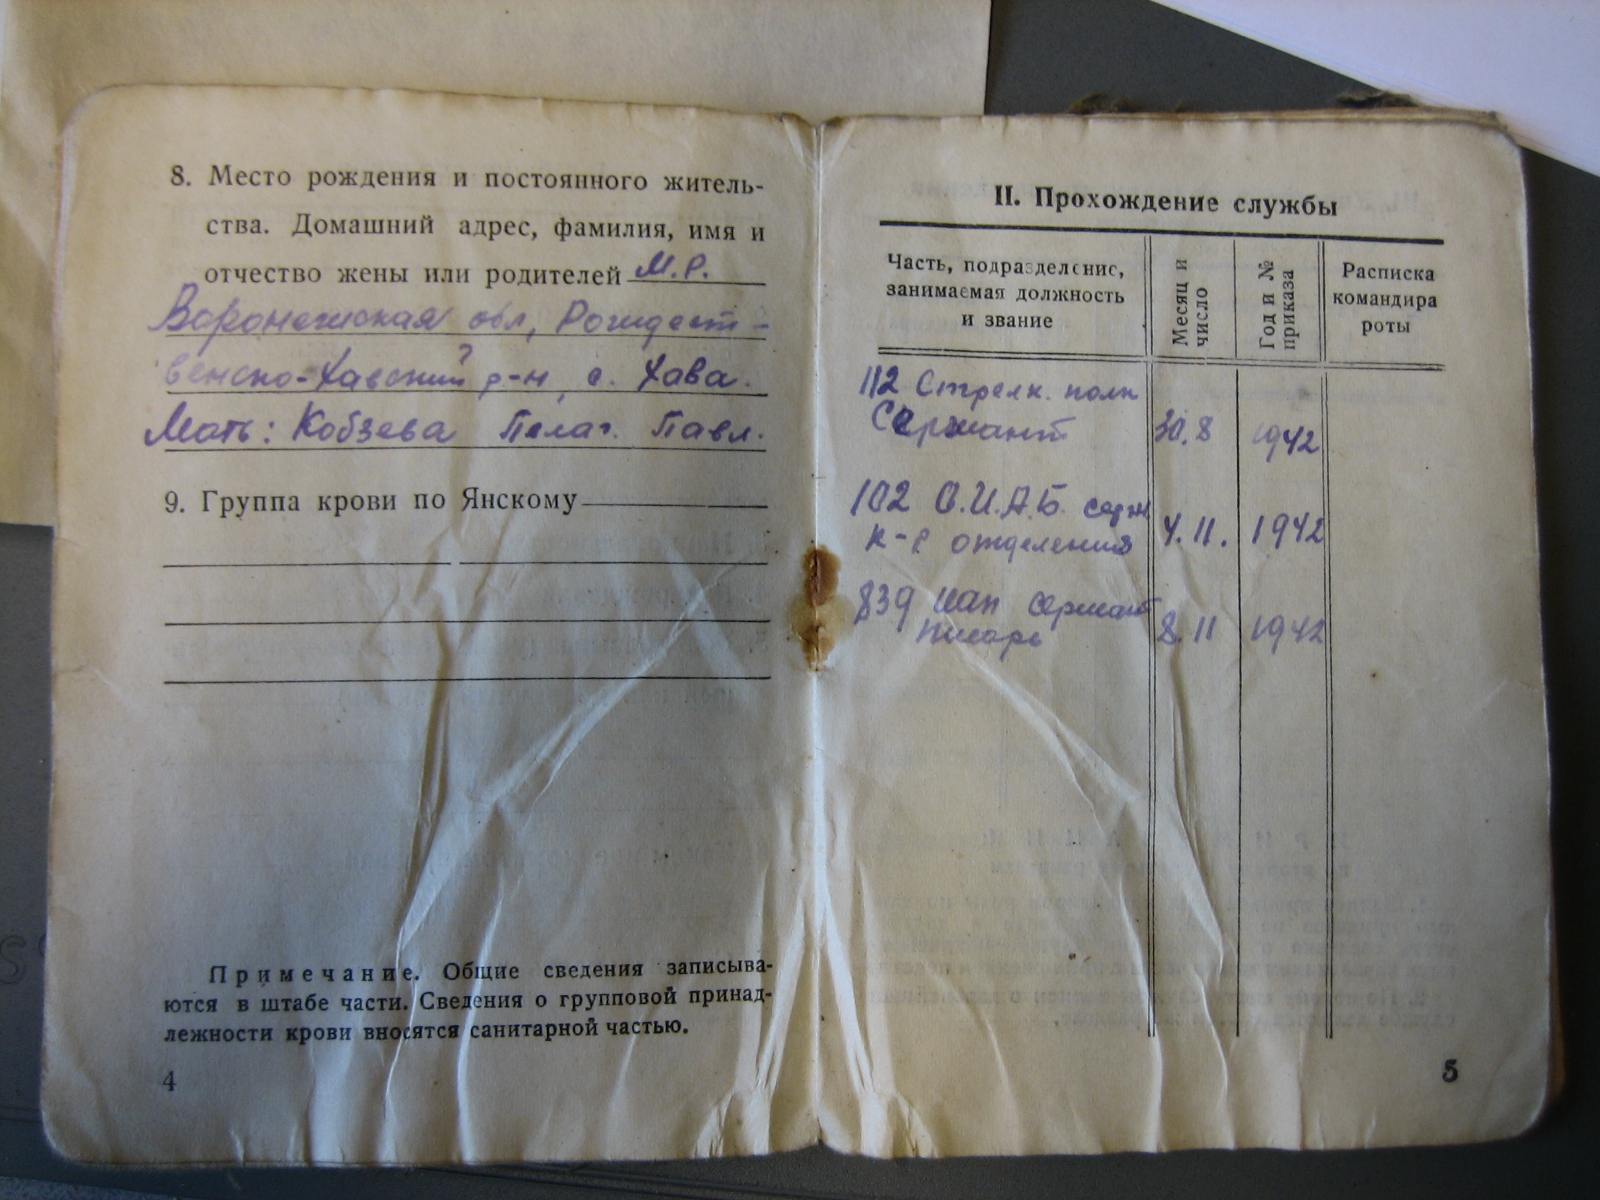 8. Место рождения и постоянного житель-
ства. Домашний адрес, фамилия, имя и
отчество жены или родителей М.Р.
Воронежская обл, Рождест-
венско-Хавский р-н, с. Хава.
Мать: Кобзева Пелаг. Павл.
9. Группа крови по Янскому
Примечание. Общие сведения записыва-
ются в штабе части. Сведения о групповой принад-
лежности крови вносятся санитарной частью.
4
II. Прохождение службы
Часть, подразделение,
занимаемая должность
и звание
Месяц и
число
Год и №
приказа
Расписка
командира
роты
112 Стрелк. полк
Сержант 30.8 1942
102 О.И.А.Б. серж
к-р отделения 4.11. 1942
839 сержант
писарь 8.11 1942
5